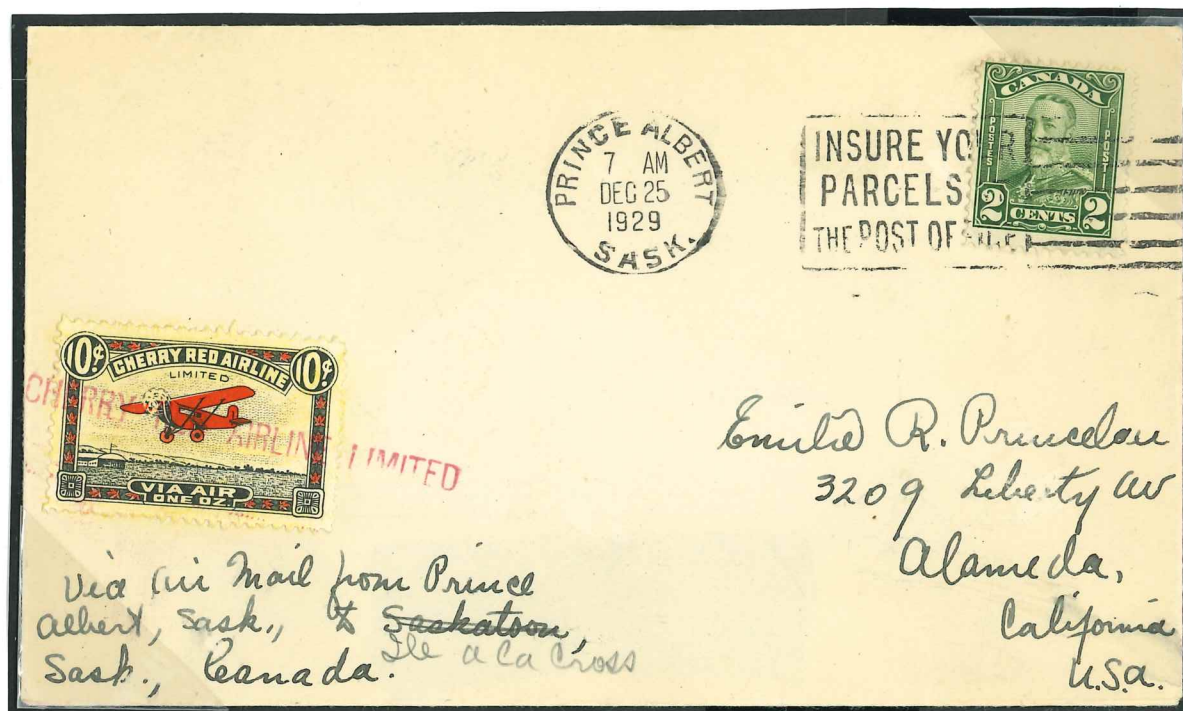 PRINCE ALBERT
7 AM
DEC 25
1929
SASK.
INSURE YOUR
PARCELS
THE POST OF
CANADA
POSTES
POST
2 CENTS 2
10¢ 10¢
CHERRY RED AIRLINE
LIMITED
VIA AIR
ONE OZ.
CHERRY AIRLINE LIMITED
Emilie R. Princelau
3209 Liberty Av
Alameda,
California
U.S.A.
Via Air Mail from Prince
Albert, Sask., to Saskatoon,
Ile a La Cross
Sask., Canada.